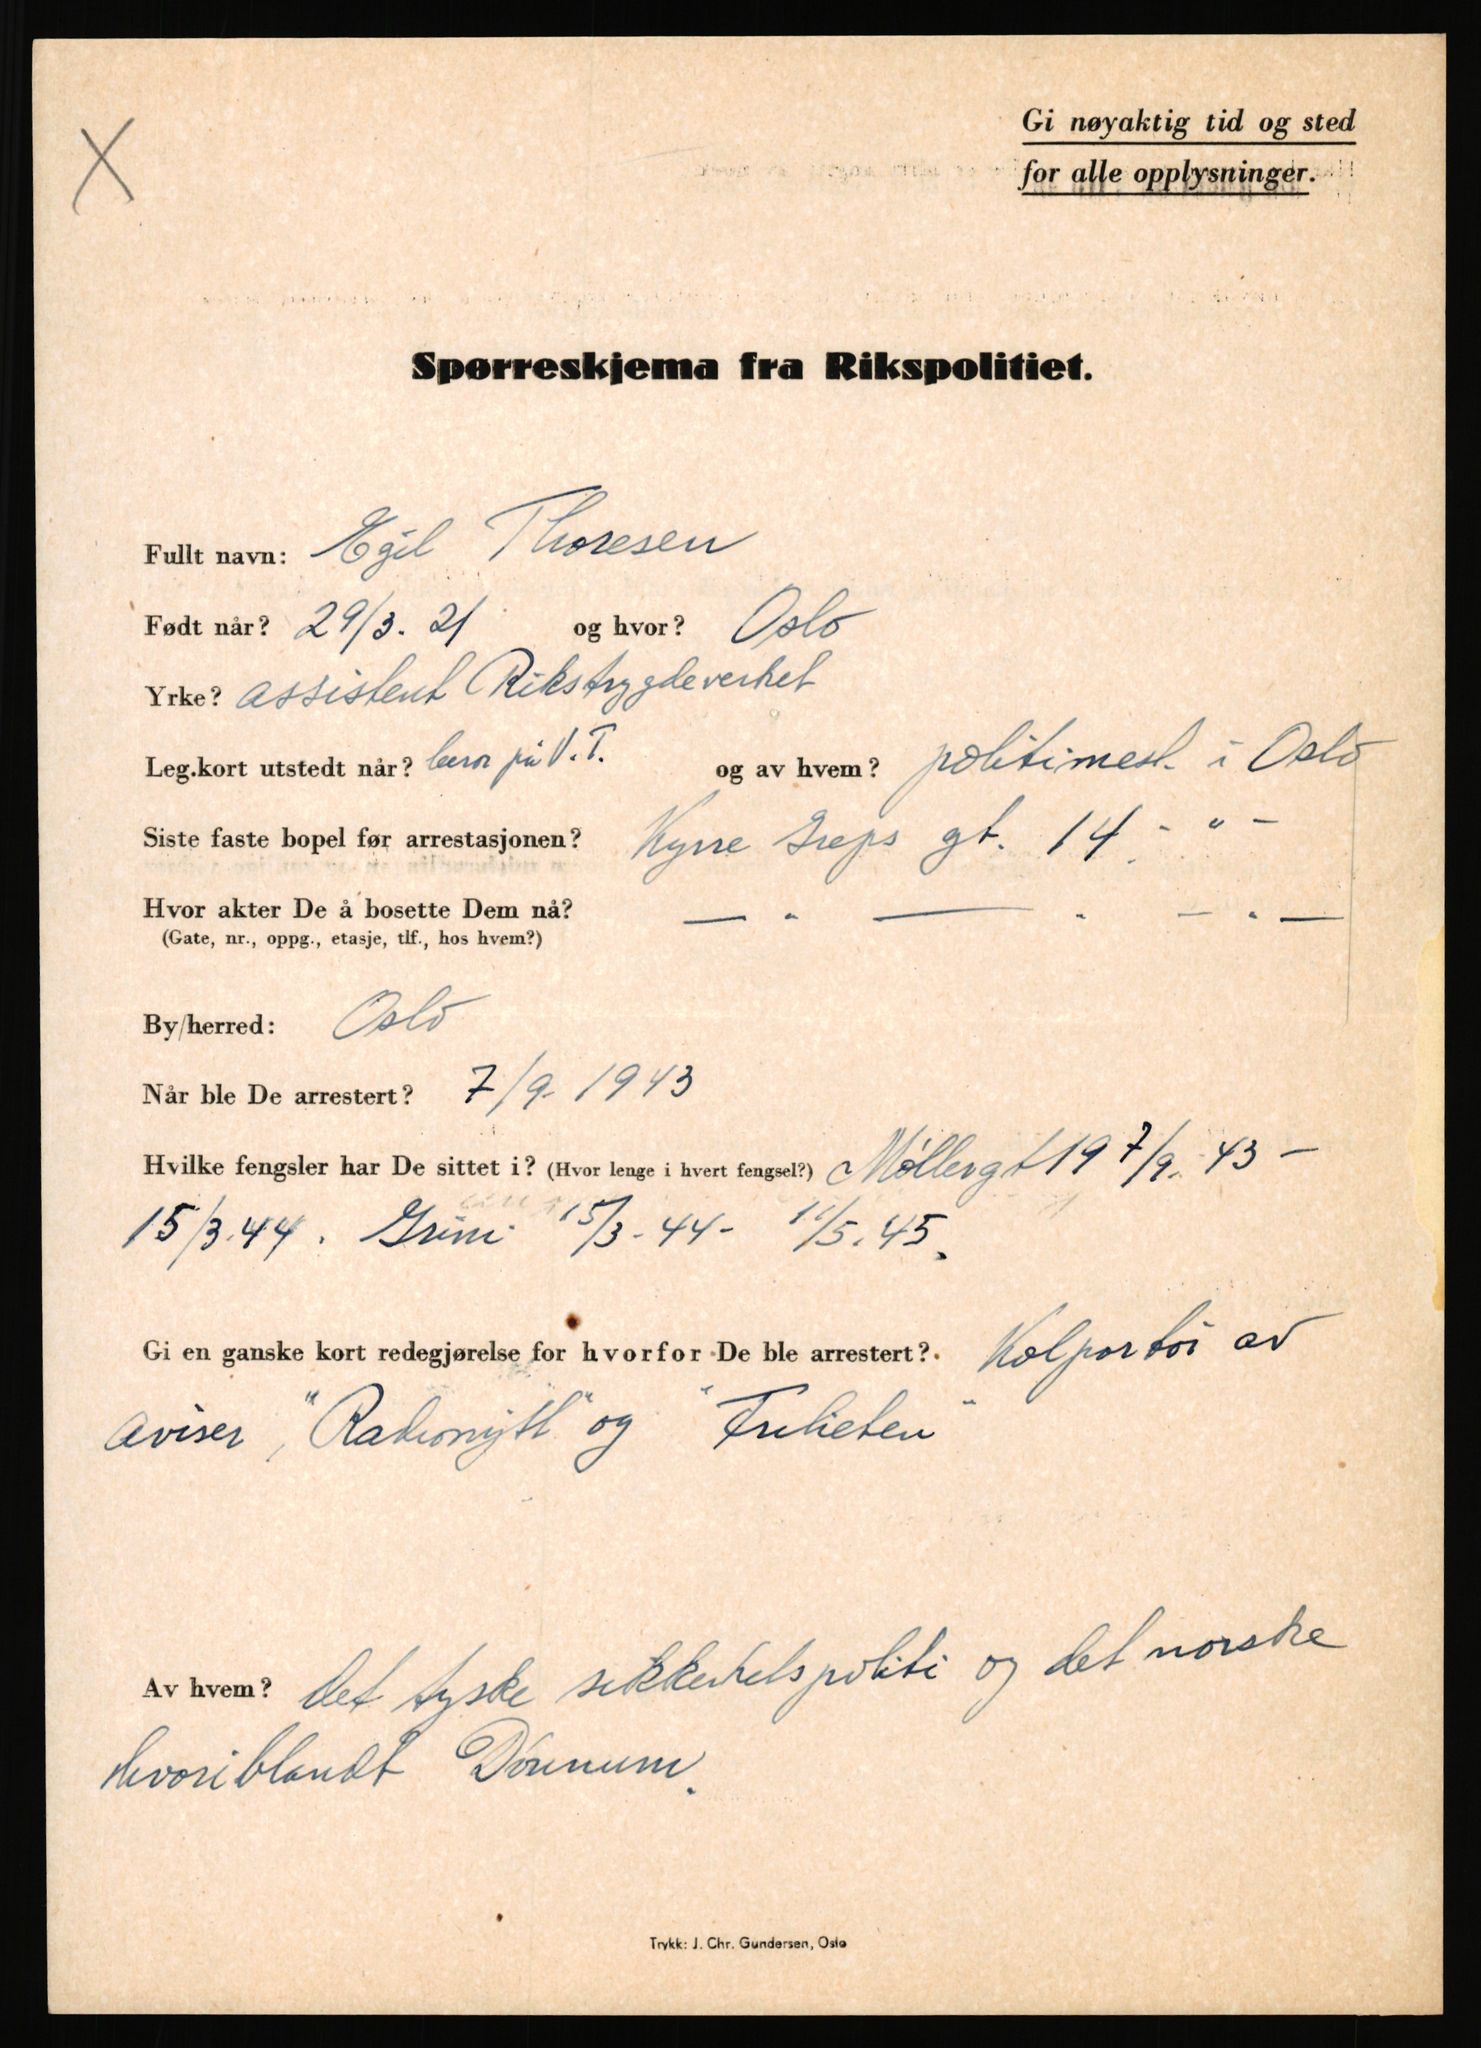 Gi nøyaktig tid og sted
for alle opplysninger.
Spørreskjema fra Rikspolitiet.
Fullt navn: Egil Thoresen
Født når? 29/3. 21 og hvor? Oslo
Yrke? assistent Rikstrygdeverket
Leg.kort utstedt når? beror på V.T. og av hvem? politimest. i Oslo
Siste faste bopel før arrestasjonen? Kyrre Greps gt. 14. - " -
Hvor akter De å bosette Dem nå? — " — " — " —
(Gate, nr., oppg., etasje, tlf., hos hvem?)
By/herred: Oslo
Når ble De arrestert? 7/9- 1943
Hvilke fengsler har De sittet i? (Hvor lenge i hvert fengsel?) Møllergt 19 7/9. 43 -
15/3.44. Grini 15/3-44- 11/5.45.
Gi en ganske kort redegjørelse for hvorfor De ble arrestert? Kolportør av
aviser, "Radionytt" og "Friheten"
Av hvem? det tyske sikkerhetspoliti og det norske
hvoriblandt Dønnum.
Trykk: J. Chr. Gundersen, Oslo